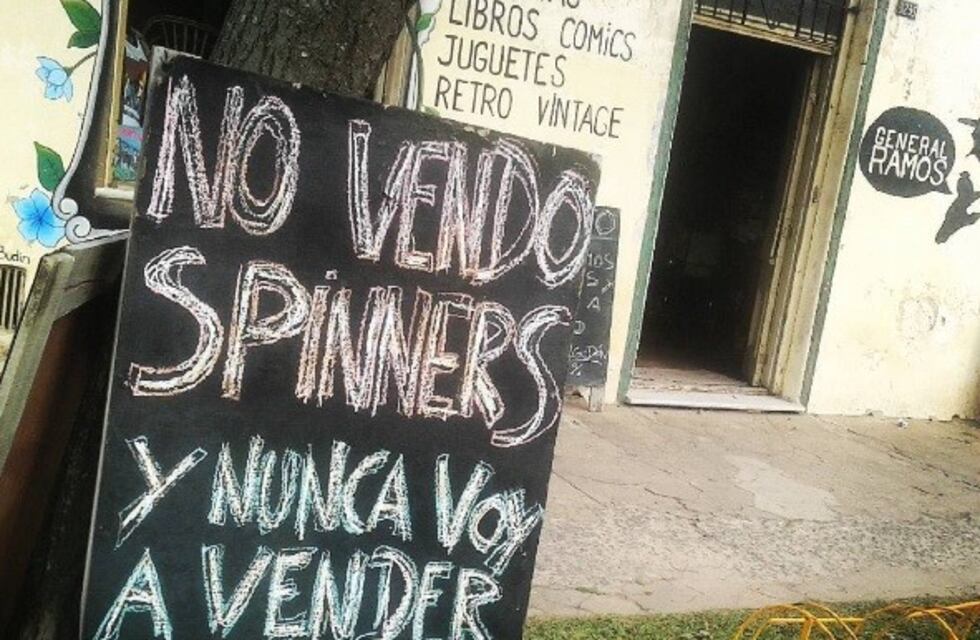 LIBROS COMICS
JUGUETES
RETRO VINTAGE
GENERAL
RAMOS
NO VENDO
SPINNERS
Y NUNCA VOY
A VENDER
Budin